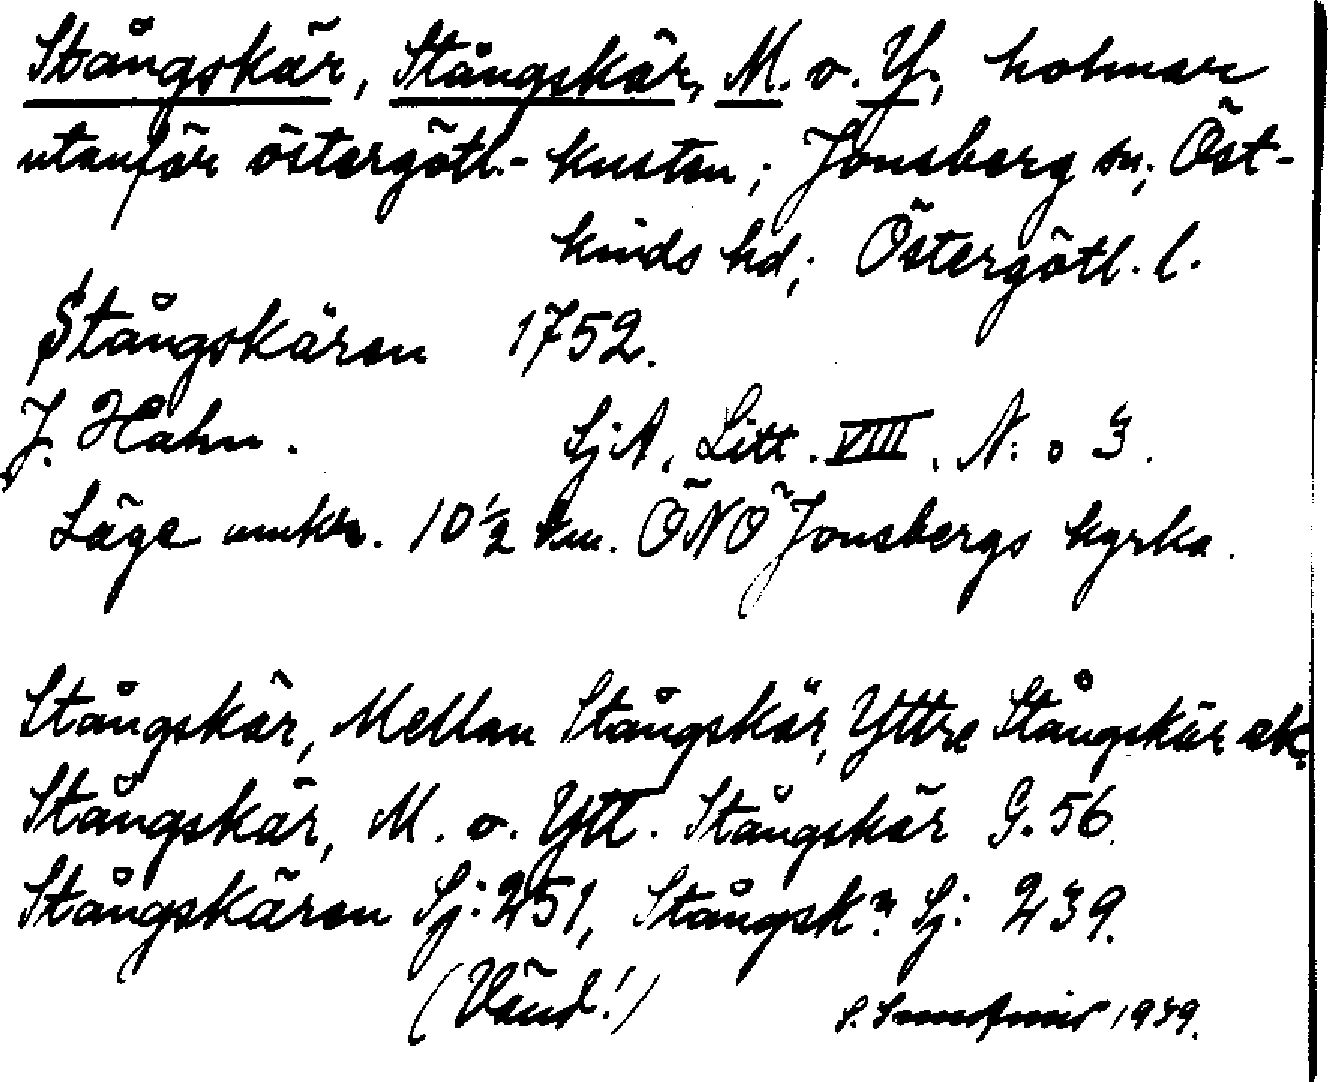 Stångskär, Stångskär, M. o. Y., holmar
utanför östergötl.- kusten; Jonsberg sn; Öst-
kinds hd; Östergötl. l.
Stångskären 1752.
J. Hahn. SjA, Litt. VIII, N:o 3.
Läge omkr. 10½ km. ÖNÖ Jonsbergs kyrka.
Stångskär, Mellan Stångskär, Yttre Stångskär ek.
Stångskär, M. o. Ytt. Stångskär G. 56.
Stångskären Sj: 251, Stångsk:n Sj: 239.
(Vänd!) S. 1939.